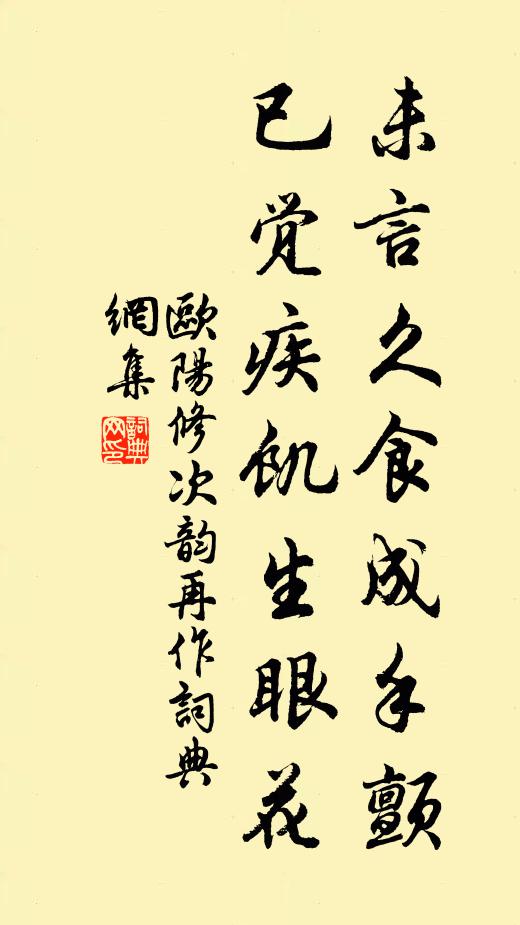 未言久食成手颤
已觉疾饥生眼花
歐陽修次韵再作詞典
網集
詞典
网印